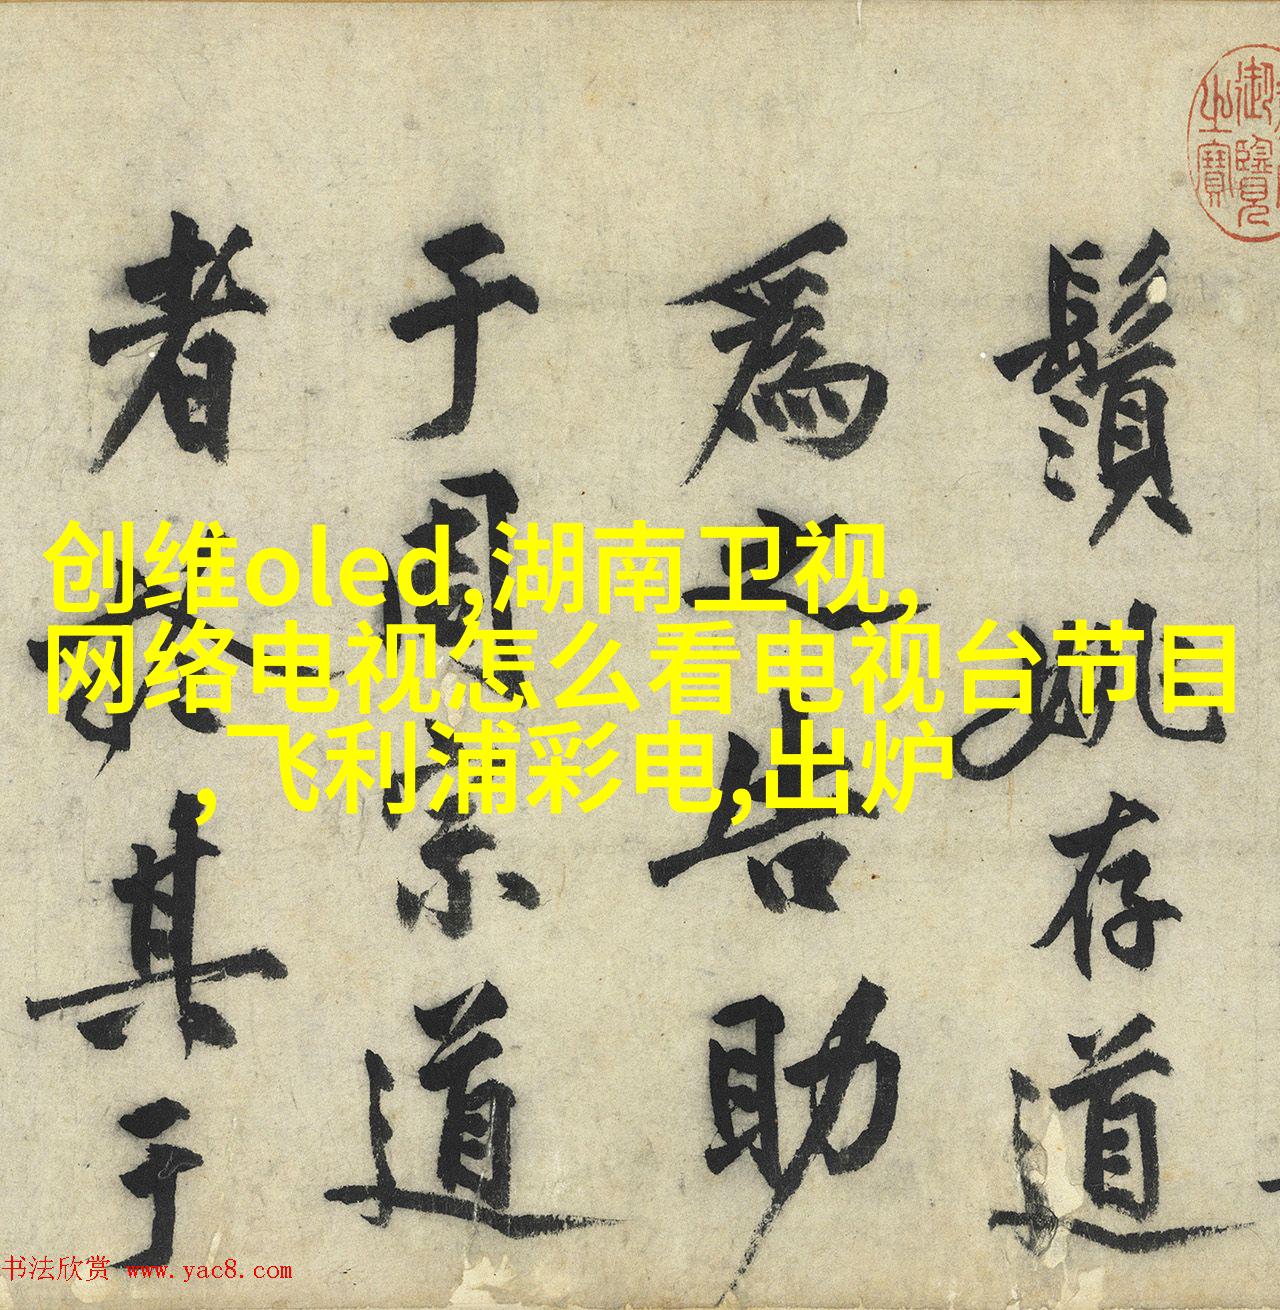 创维oled,湖南卫视,
网络电视怎么看电视台节目
,飞利浦彩电,出炉
鬚姚存道
為之告助
于周宗道
者於其于
御覽
之寶
书法欣赏 www.yac8.com